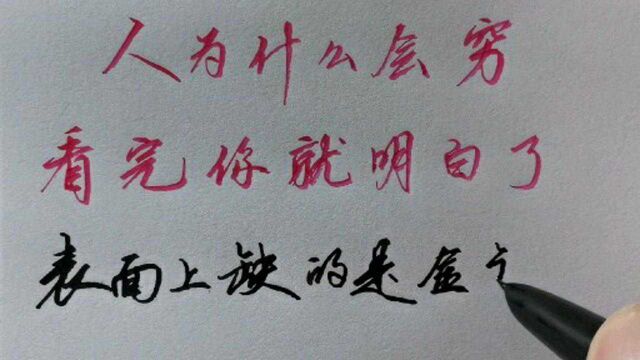 人为什么会穷
看完你就明白了
表面上缺的是金